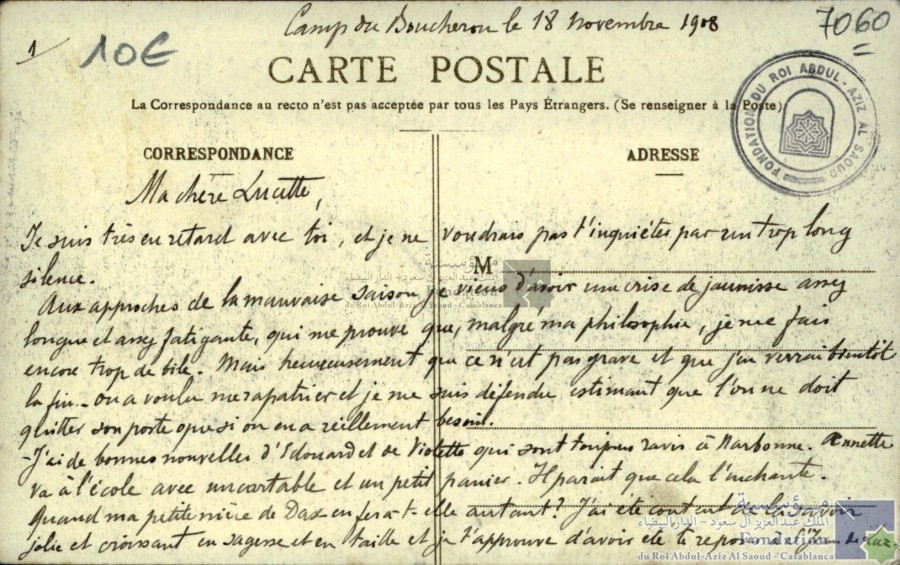 Camp du Boucheron le 18 novembre 1908
7060
1
10€
CARTE POSTALE
La Correspondance au recto n'est pas acceptée par tous les Pays Étrangers. (Se renseigner à la Poste)
FONDATION DU ROI ABDUL-AZIZ AL SAOUD
CORRESPONDANCE
ADRESSE
M
Ma chère Lucette,
Je suis très en retard avec toi, et je ne voudrais pas t'inquiéter par un trop long
silence.
Aux approches de la mauvaise saison je viens d'avoir une crise de jaunisse assez
longue et assez fatigante, qui me prouve que, malgré ma philosophie, je me fais
encore trop de bile. Mais heureusement que ce n'est pas grave et que j'en verrai bientôt
la fin. - on a voulu me rapatrier et je me suis défendu estimant que l'on ne doit
quitter son poste que si on en a réellement besoin.
- J'ai de bonnes nouvelles d'Edouard et de Violette qui sont toujours ravis à Narbonne. Annette
va à l'école avec un cartable et un petit panier. Il parait que cela l'enchante.
Quand ma petite nièce de Dax en fera-t-elle autant? J'ai été content de la savoir
jolie et croissant en sagesse et en taille et je t'approuve d'avoir été te reposer à St Jean de Luz.
مؤسسة
الملك عبد العزيز آل سعود - الدار البيضاء
Fondation
du Roi Abdul-Aziz Al Saoud - Casablanca
مؤسسة
الملك عبد العزيز آل سعود - الدار البيضاء
Fondation
du Roi Abdul-Aziz Al Saoud - Casablanca